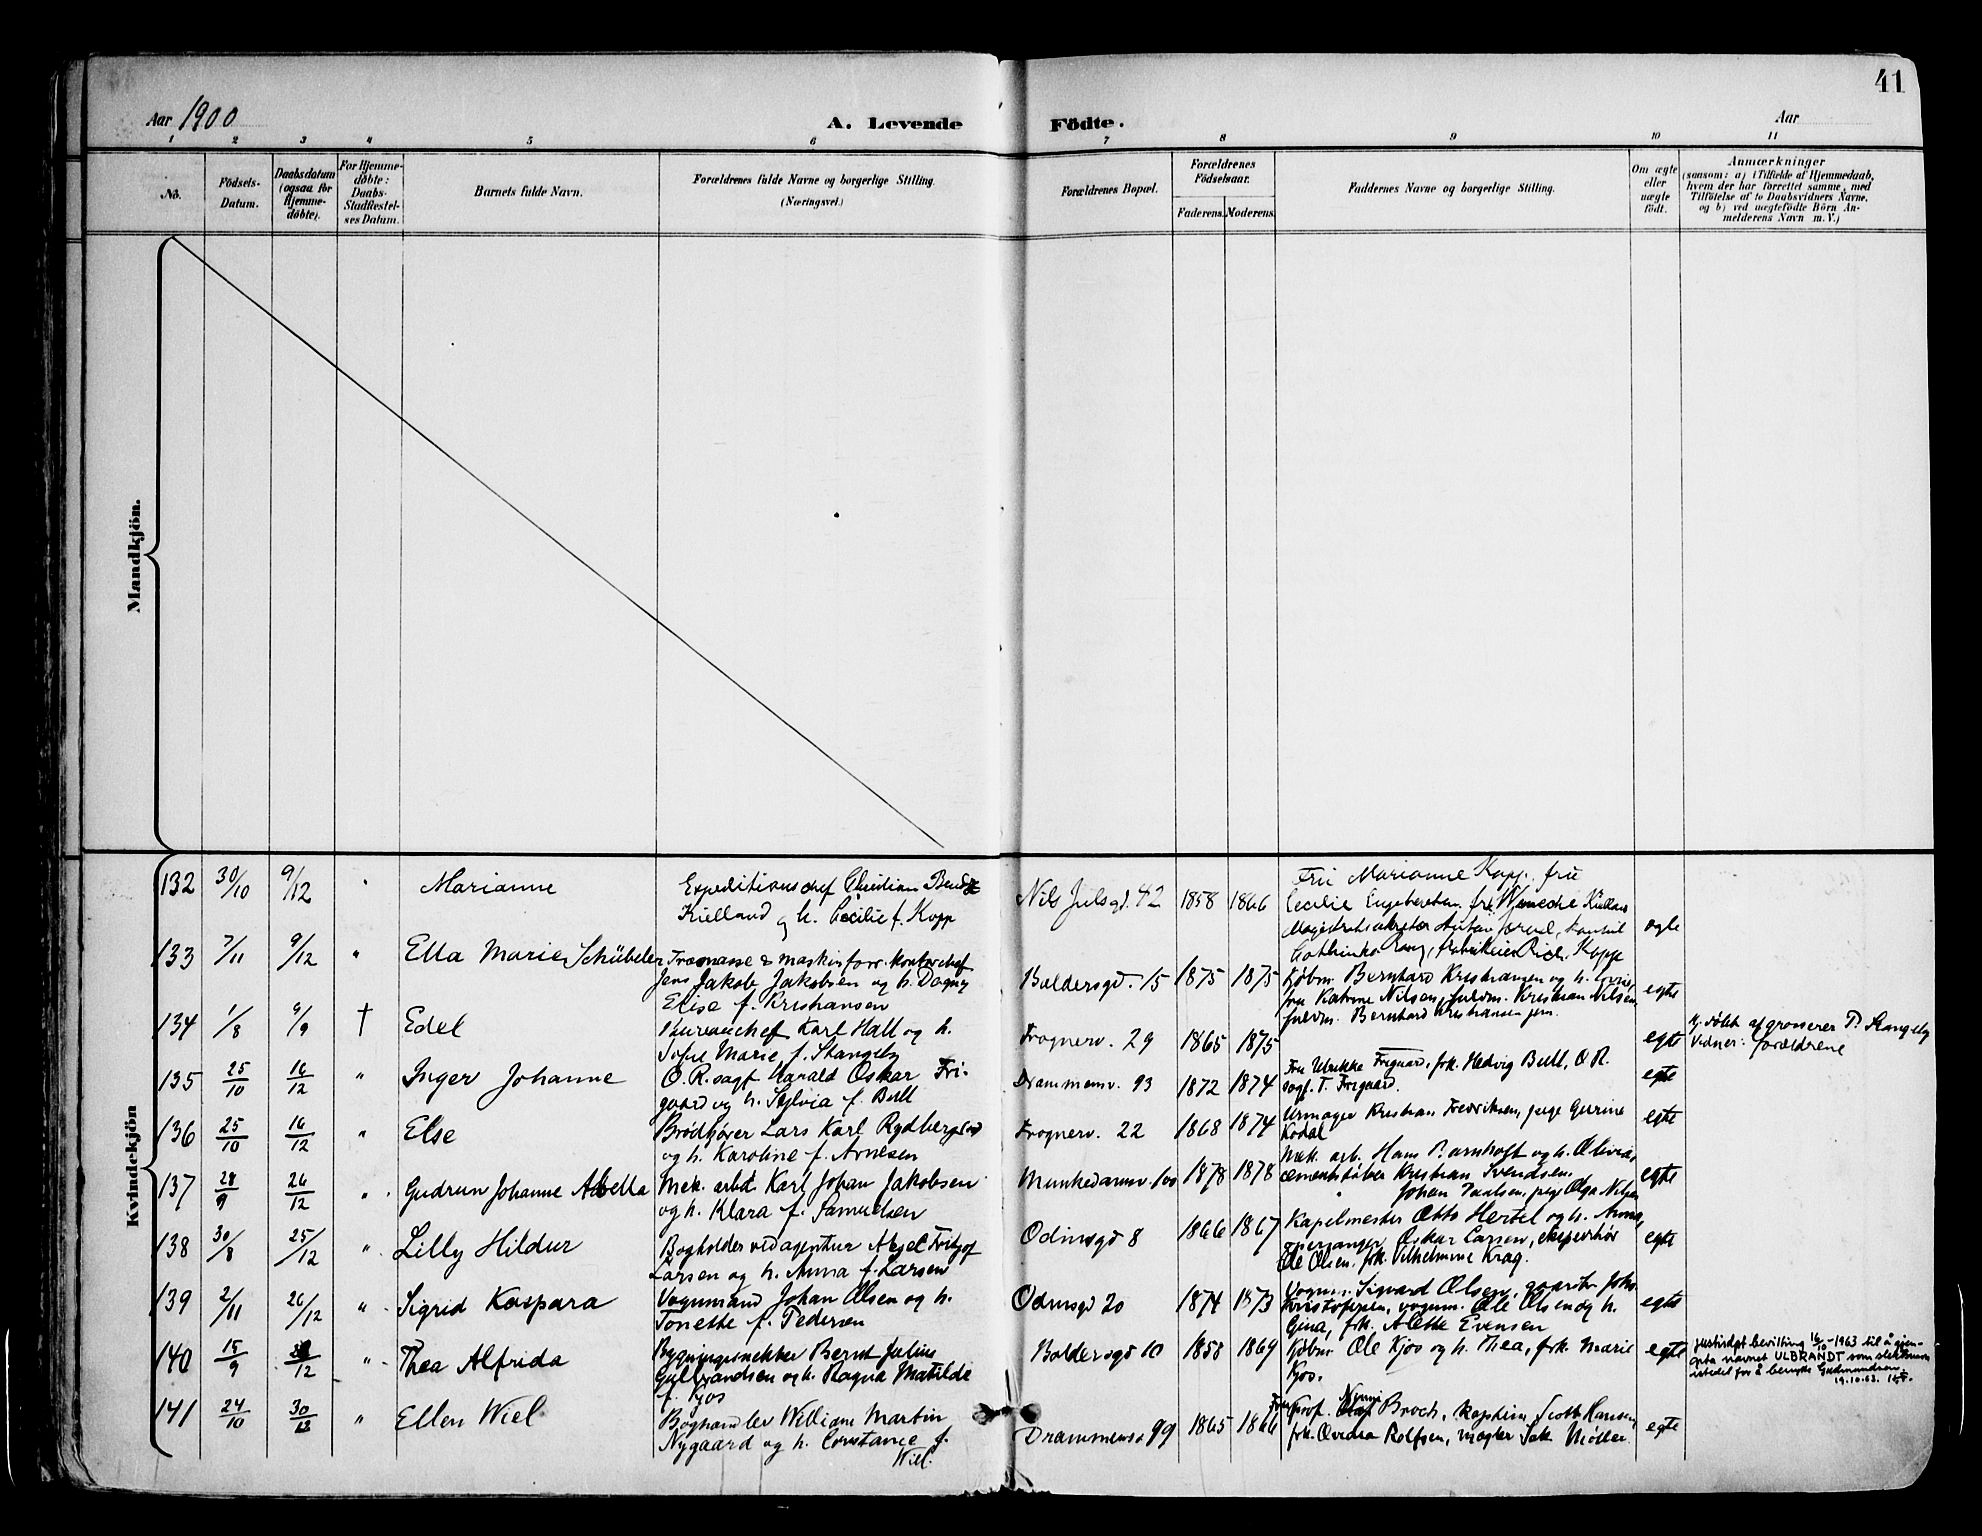 41
Aar 1900
A. Levende Födte.
Aar
1 2 3 4 5 6 7 8 9 10 11
No.
Födsels-Datum.
Daabsdatum (ogsaa for Hjemme-døbte).
For Hjemme-døbte: Daabs-Stadfæstel-ses Datum.
Barnets fulde Navn.
Forældrenes fulde Navne og borgerlige Stilling.
(Næringsvei.)
Forældrenes Bopæl.
Forældrenes Födselsaar.
Faderens. Moderens.
Faddernes Navne og borgerlige Stilling.
Om ægte eller uægte født.
Anmærkninger
(saasom: a) i Tilfælde af Hjemmedaab, hvem der har forrettet samme, med Tilföielse af to Daabsvidners Navne, og b) ved uægtefödte Börn An-melderens Navn m. V.)
Mandkjön.
Kvindekjön
132 30/10 9/12 " Marianne
Expeditionschef Christian
Kielland og h. Cecilie f. Kopp
Nils Julsgd. 42 1858 1866
Fru Marianne Kopp, fru
Cecilie
Kopp
ægte
133 7/11 9/12 " Ella Marie Schübeler
Træmasse & maskinforr. kontorchef
Jens Jakob Jakobsen og h. Dagny
Elise f. Kristiansen
Baldersgd. 15 1875 1875
Kjøbm. Bernhard Kristiansen og h.
fru Katrine Nilsen, fuldm. Kristian Nilsen,
fuldm. Bernhard Kristiansen jun.
egte
134 1/8 9/9 † Edel
Bureauchef Karl Hall og h.
Sofie Marie f. Stangeby
Frognerv. 29 1865 1875
egte
Hj. døbt af grosserer P. Stangeby
Vidner: forældrene
135 25/10 16/12 " Inger Johanne
O. R. sagf. Harald Oskar Fri-
gaard og h. Sylvia f. Bull
Drammensv. 93 1872 1874
Fru Ulrikke Frigaard, frk. Hedvig Bull, O. R.
sagf. T. Frigaard.
egte
136 25/10 16/12 " Else
Brødkjører Lars Karl
og h. Karoline f. Arnesen
Frognerv. 22 1868 1874
Urmager Kristian Fredriksen, pige Gurine
Kodal
egte
137 28/9 26/12 " Gudrun Johanne Abella
Mek. arbd. Karl Johan Jakobsen
og h. Klara f. Samuelsen
Munkedamsv. 100 1878 1878
Mek. arb. Hans og h. Olivia,
cementstøber Kristian Svendsen,
" Johan Paulsen, pige Olga Nilsen
egte
138 30/8 25/12 " Lilly Hildur
Bogholder ved agentur Axel Fritjof
Larsen og h. Anna f. Larsen
Odinsgd 8 1866 1867
Kapelmester Otto Hertel og h. Anna,
operasanger Oskar Larsen, ekspeditør
Ole Olsen, frk. Vilhelmine Krag.
egte
139 2/11 26/12 " Sigrid Kaspara
Vognmand Johan Olsen og h.
Tonette f. Pedersen
Odinsgd 20 1874 1873
Vognm. Sigvard Olsen, gaardbr. Johs.
Kristoffersen, vognm. Ole Olsen og h.
Gina, frk. Alette Evensen
egte
140 15/9 /12 " Thea Alfrida
Bygningssnekker Bernt Julius
Gulbrandsen og h. Ragna Matilde
f. Kjos
Baldersgd 10 1858 1869
Kjøbm. Ole Kjos og h. Thea, frk. Marie
Kjos.
egte
Justisdept. bevilling 16/10-1963 til å gjen-
oppta navnet ULBRANDT som slektsnavn
istedet for å benytte
19.10.63.
141 24/10 30/12 " Ellen Wiel
Boghandler William Martin
Nygaard og h. Constance f.
Wiel.
Drammensv 99 1865 1866
Fru prof. Nanni Broch, kaptein Scott Hansen,
frk. Rolfsen, mægler Møller.
egte